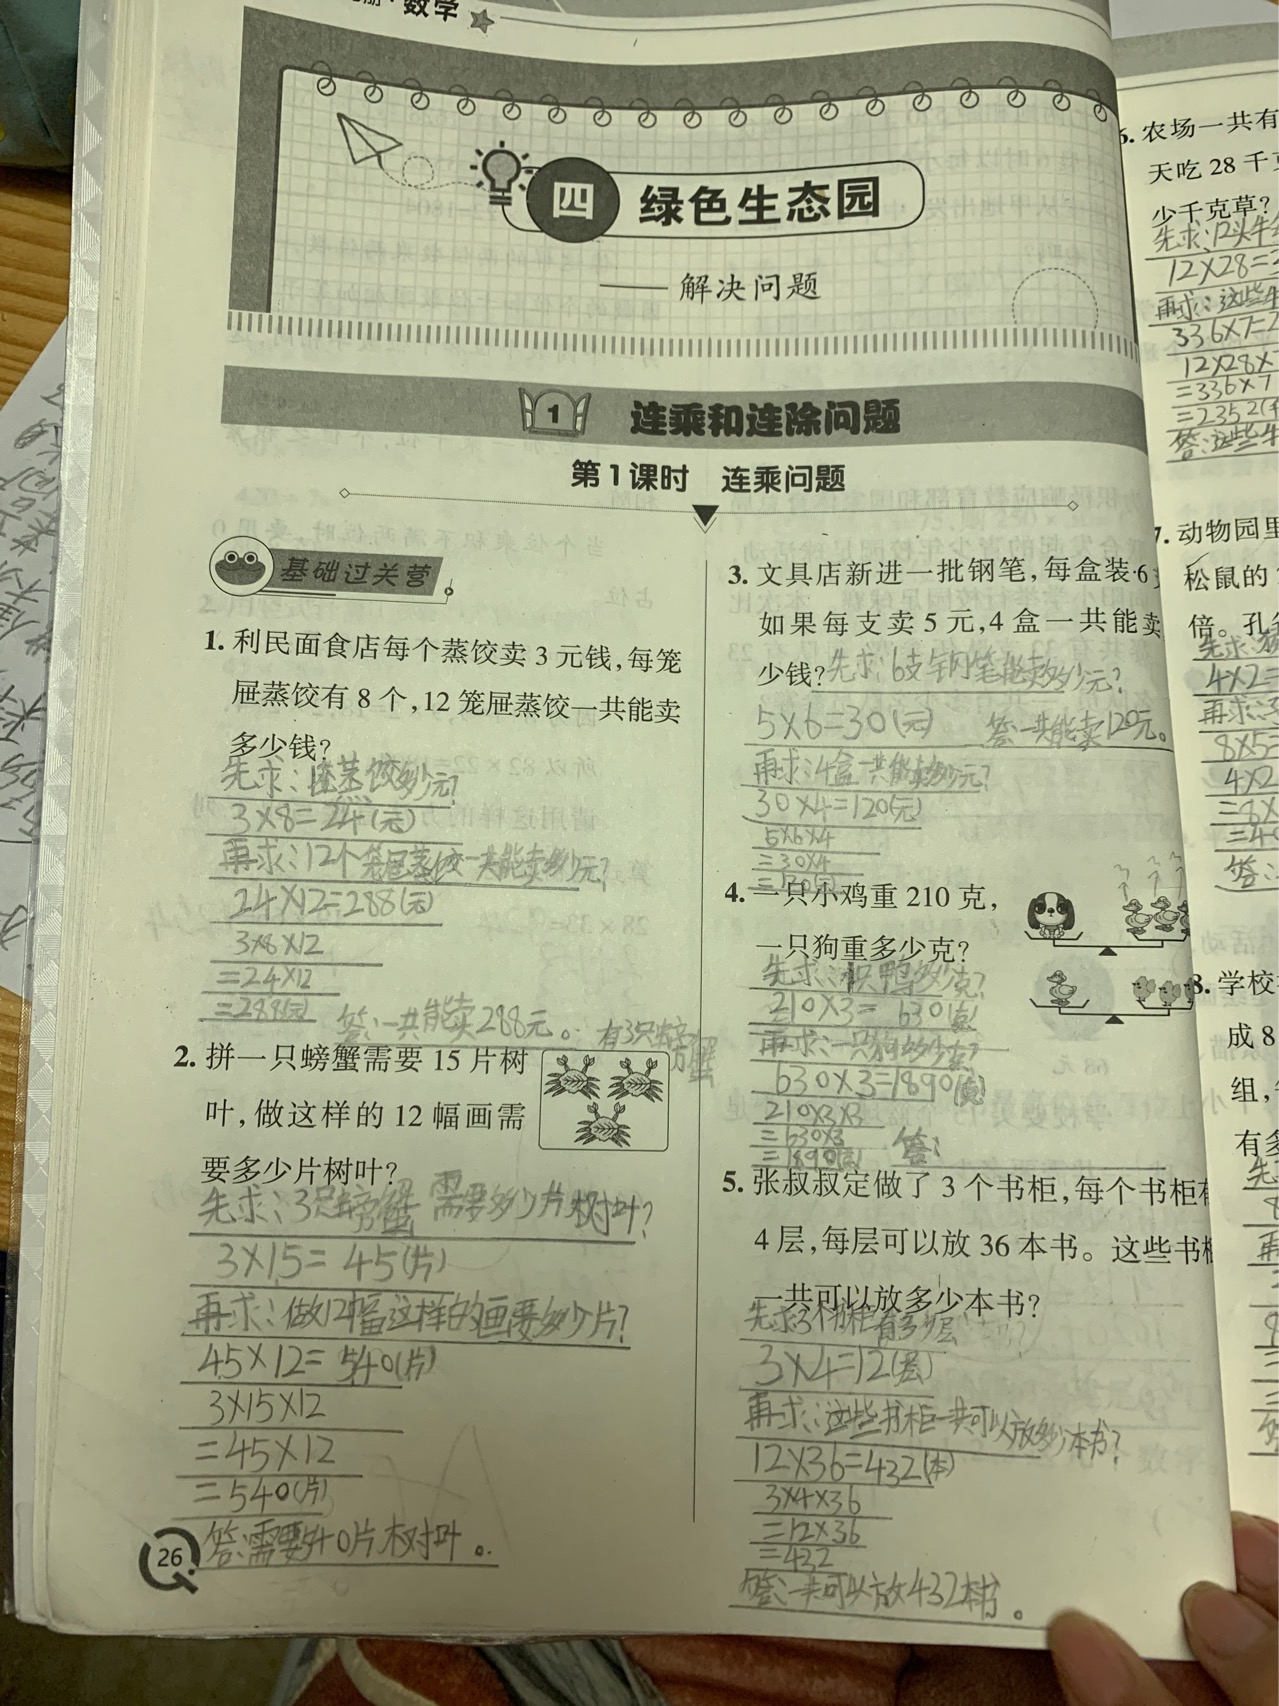 数学
四 绿色生态园
——解决问题
1 连乘和连除问题
第1课时 连乘问题
基础过关营
1. 利民面食店每个蒸饺卖3元钱,每笼
屉蒸饺有8个,12笼屉蒸饺一共能卖
多少钱?
3×8=24(元)
再求:12个笼屉蒸饺一共能卖多少元?
24×12=288(元)
3×8×12
=24×12
=288(元)
答:一共能卖288元。
2. 拼一只螃蟹需要15片树
叶,做这样的12幅画需
要多少片树叶?
有3只螃蟹
先求:3只螃蟹需要多少片树叶?
3×15=45(片)
再求:做12幅这样的画要多少片?
45×12=540(片)
3×15×12
=45×12
=540(片)
答:需要540片树叶。
26
3. 文具店新进一批钢笔,每盒装6
如果每支卖5元,4盒一共能卖
少钱?
先求:6支钢笔能卖多少元?
5×6=30(元) 答:一共能卖120元。
再求:4盒一共能卖多少元?
30×4=120(元)
5×6×4
=30×4
4. 一只小鸡重210克,
一只狗重多少克?
先求:一只鸭多少克?
210×3=630(克)
再求:一只狗多少克?
630×3=1890(克)
210×3×3
=630×3
=1890(克)
答:
5. 张叔叔定做了3个书柜,每个书柜有
4层,每层可以放36本书。这些书柜
一共可以放多少本书?
先求3个书柜有多少层
3×4=12(层)
再求:这些书柜一共可以放多少本书?
12×36=432(本)
3×4×36
=12×36
=432
答:一共可以放432本书。
6. 农场一共有
天吃28千
少千克草?
先求:12头牛
12×28=
再求:这些牛
336×7=2
12×28×
=336×7
=2352(
答:这些牛
7. 动物园里
松鼠的
倍。孔
先求:
4×2=
再求:
8×5=
4×2
=8×
=4
答:
8. 学校
成8
组,
有多
先
再